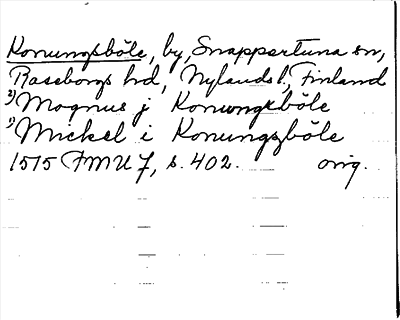 Konungsböle, by, Snappertuna sn,
Raseborgs hd, Nylands l., Finland
2) Magnus j Konungxböle
1) Mickel i Konungzböle
1515 FMU 7, s. 402. orig.